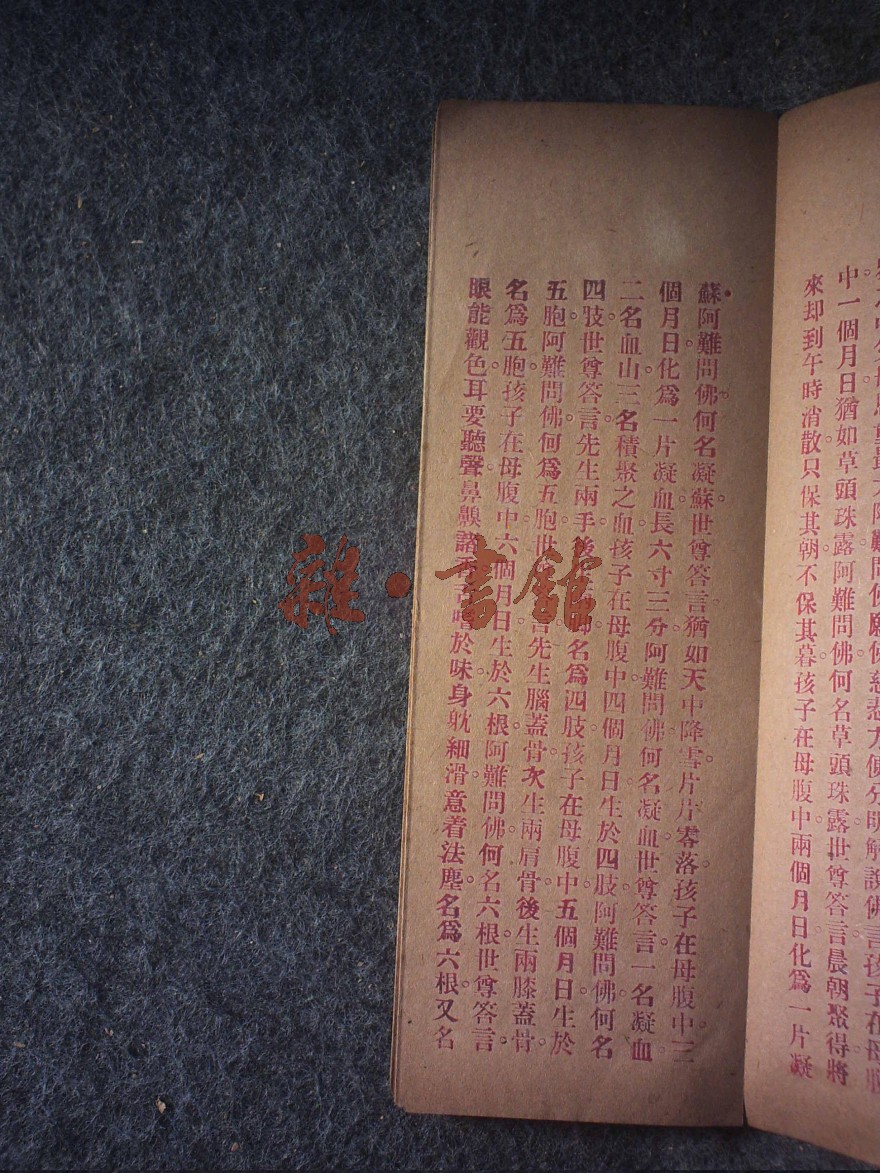 中一個月日猶如草頭珠露阿難問佛何名草頭珠露世尊答言晨朝聚得將
來却到午時消散只保其朝不保其暮孩子在母腹中兩個月日化爲一片凝
蘇阿難問佛何名凝蘇世尊答言猶如天中降雪片片零落孩子在母腹中三
個月日化爲一片凝血長六寸三分阿難問佛何名凝血世尊答言一名凝血
二名血山三名積聚之血孩子在母腹中四個月日生於四肢阿難問佛何名
四肢世尊答言先生兩手後名爲四肢孩子在母腹中五個月日生於
五胞阿難問佛何爲五胞世言先生腦蓋骨次生兩肩骨後生兩膝蓋骨
名爲五胞孩子在母腹中六個月日生於六根阿難問佛何名六根世尊答言
眼能觀色耳要聽聲鼻齅諸舌嗜於味身躭細滑意着法塵名爲六根又名
雜·書館